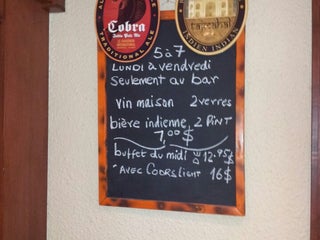 Cobra
TRADITIONAL ALE
INDIEN INDIAN
5 à 7
LUNDI à vendredi
seulement au bar
vin maison 2 verres
bière indienne 2 PiNT
7,00 $
buffet du midi 12.95 $
"AVEC COORSLIGHT 16 $